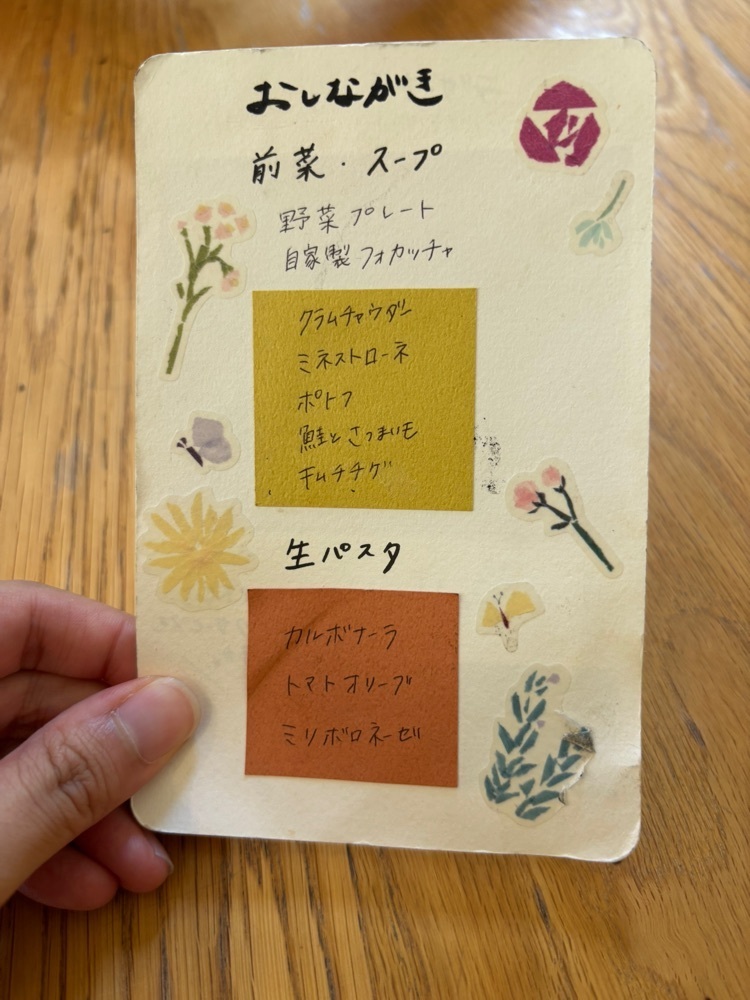 おしながき
前菜・スープ
野菜プレート
自家製フォカッチャ
クラムチャウダー
ミネストローネ
ポトフ
鮭とさつまいも
キムチチゲ
生パスタ
カルボナーラ
トマトオリーブ
ミソボロネーゼ